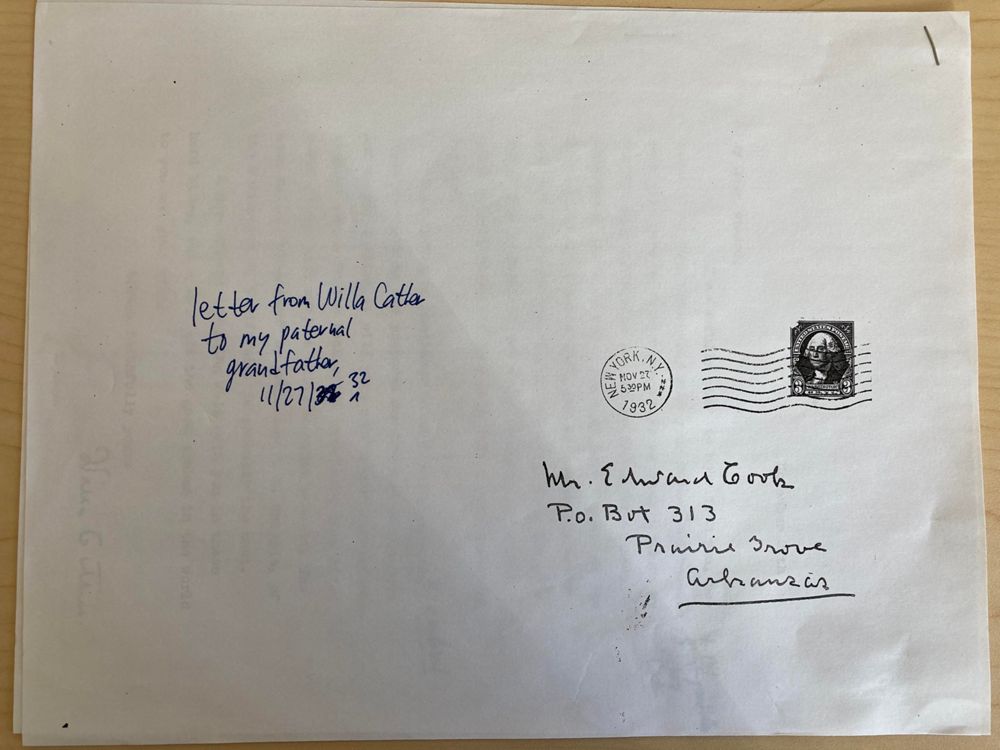 letter from Willa Cather
to my paternal
grandfather,
11/27/32
NEW YORK, N.Y.
NOV 27
5 30 PM
1932
UNITED STATES POSTAGE
3 3
Mr. Edward Cook
P.O. Box 313
Prairie Grove
Arkansas